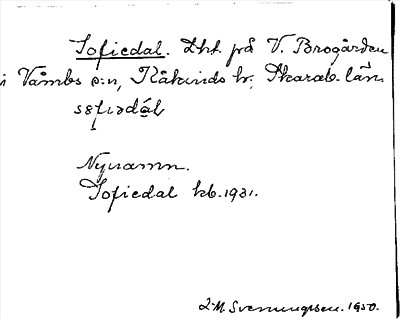 Sofiedal. Lht. på V. Brogården
i Våmbs s:n, Kåkinds hr, Skarab. län
sɛfiədál
Nynamn.
Sofiedal kb. 1931.
L-M. Svenungsson. 1950.